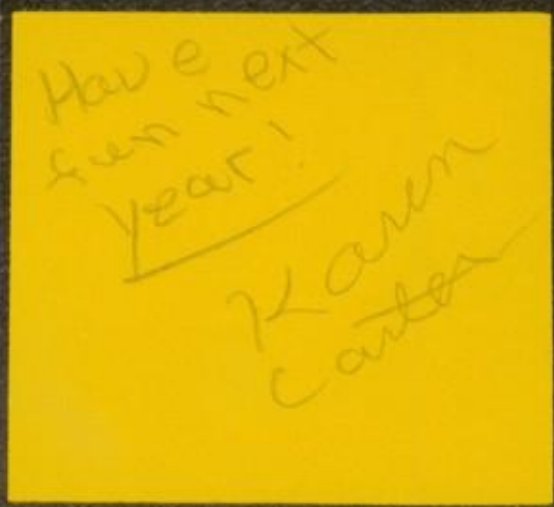 Have
fun next
year!
Karen
Carter